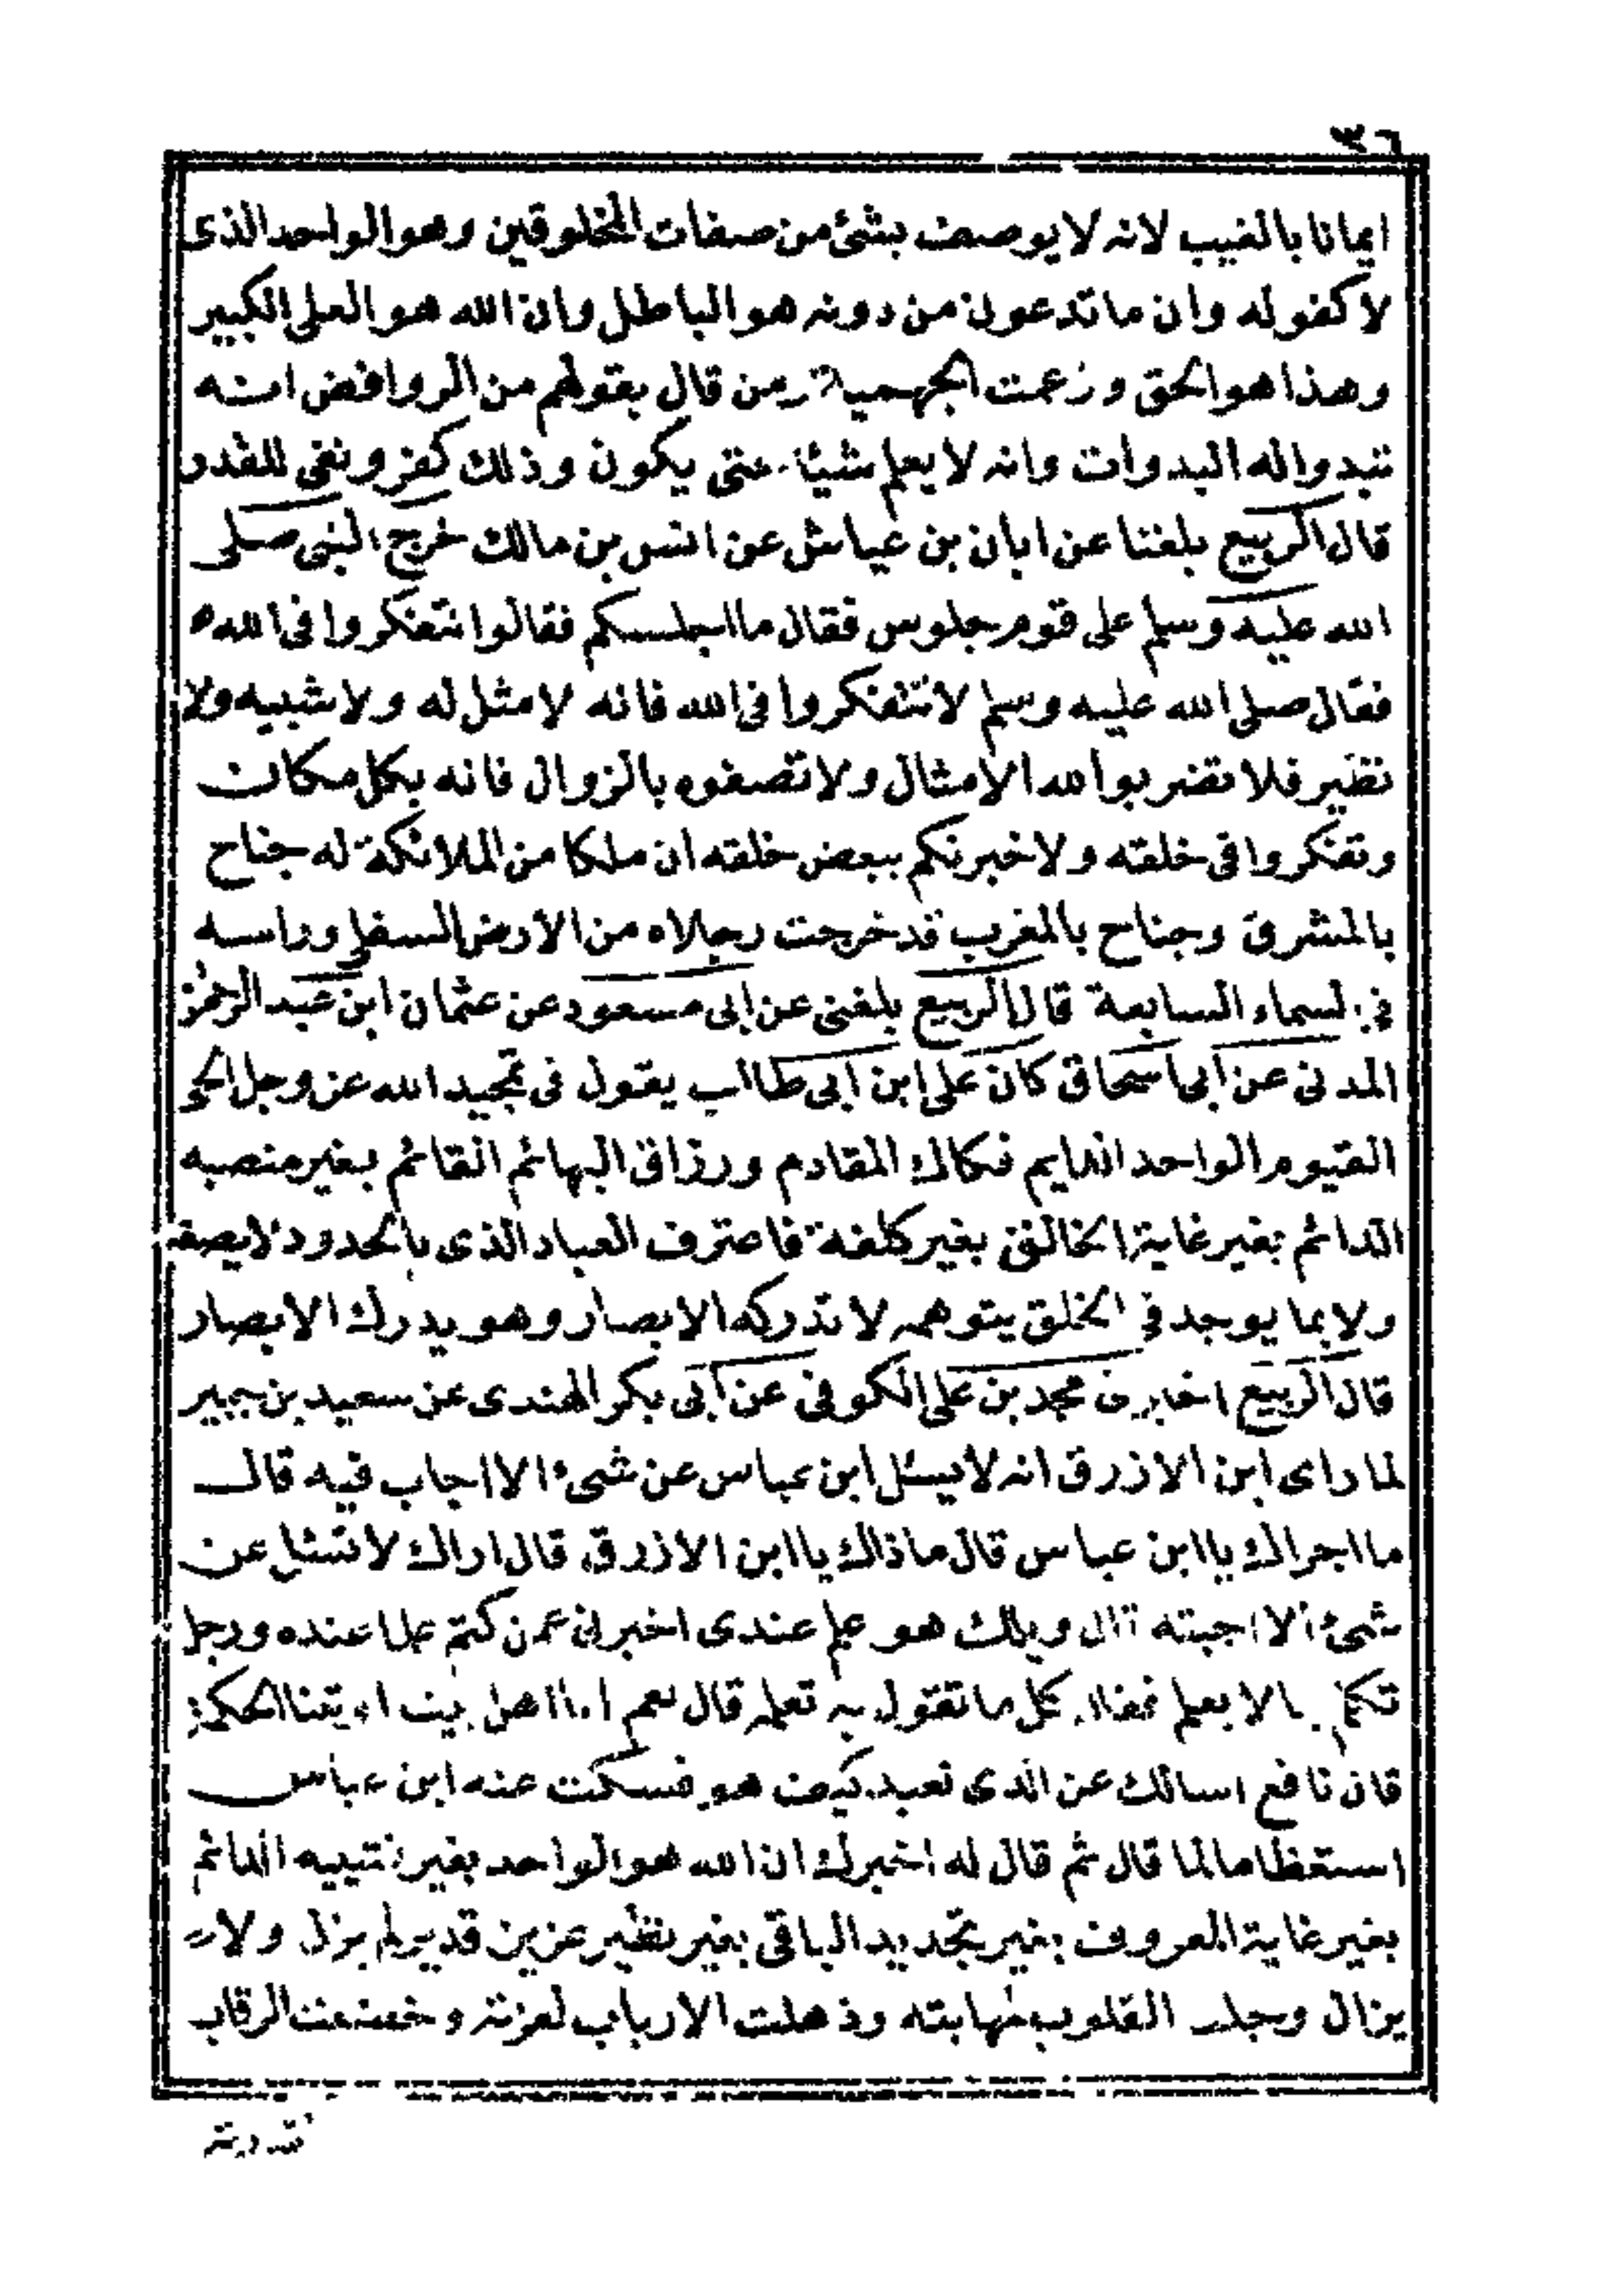 ٣٦
ايمانا بالغيب لانه لا يوصف بشئ من صفات المخلوقين وهو الواحد الذى
لا كفو له وان ما تدعون من دونه هو الباطل وان الله هو العلى الكبير
وهذا هو الحق وزعمت الجهمية ومن قال بقولهم من الروافض انه
تبدوا له البدوات وانه لا يعلم شيئا حتى يكون وذلك كفر ونفى للقدر
قال الربيع بلغنا عن ابان بن عياش عن انس بن مالك خرج النبى صلى
الله عليه وسلم على قوم جلوس فقال ما اجلسكم فقالوا نتفكروا فى الله
فقال صلى الله عليه وسلم لا تتفكروا فى الله فانه لا مثل له ولا شبيه ولا
نظير فلا تضربوا لله الامثال ولا تصفوه بالزوال فانه بكل مكان
وتفكروا فى خلقته ولاخبرنكم ببعض خلقته ان ملكا من الملائكة له جناح
بالمشرق وجناح بالمغرب قد خرجت رجلاه من الأرض السفلى وراسه
فى السماء السابعة قال الربيع بلغنى عن ابى مسعود عن عثمان ابن عبد الرحمن
المدنى عن ابى اسحاق كان على ابن ابى طالب يقول فى تمجيد الله عز وجل الحى
القيوم الواحد الدايم فكاك المقادم ورزاق البهائم القائم بغير منصبه
الدائم بغير غاية الخالق بغير كلفة فاعترف العباد الذى بالحدود لا يصفه
ولا بما يوجد فى الخلق يتوهمه لا تدركه الابصار وهو يدرك الابصار
قال الربيع اخبرنى محمد بن على الكوفى عن ابى بكر الهندى عن سعيد بن جبير
لما راى ابن الازرق انه لا يسئل ابن عباس عن شئ الا اجاب فيه قال
ما اجراك يا ابن عباس قال ماذاك يا ابن الازرق قال اراك لا تسئل عن
شئ الا اجبته قال ويلك هو علم عندى اخبرنى عمن كتم علما عنده ورجل
تكلم بما لا يعلم فقال كل ما تقول به تعلمه قال نعم انا اهل بيت اوتينا الحكمة
قال نافع اسالك عن الذى تعبد كيف هو فسكت عنه ابن عباس
استعظاما لما قال ثم قال له اخبرك ان الله هو الواحد بغير تشبيه الدائم
بغير غاية المعروف بغير تحديد الباقى بغير نظير عزيز قدير لم يزل ولا
يزال وجلت القلوب لمهابته وذهلت الارباب لعزته وخضعت الرقاب
لقدرته